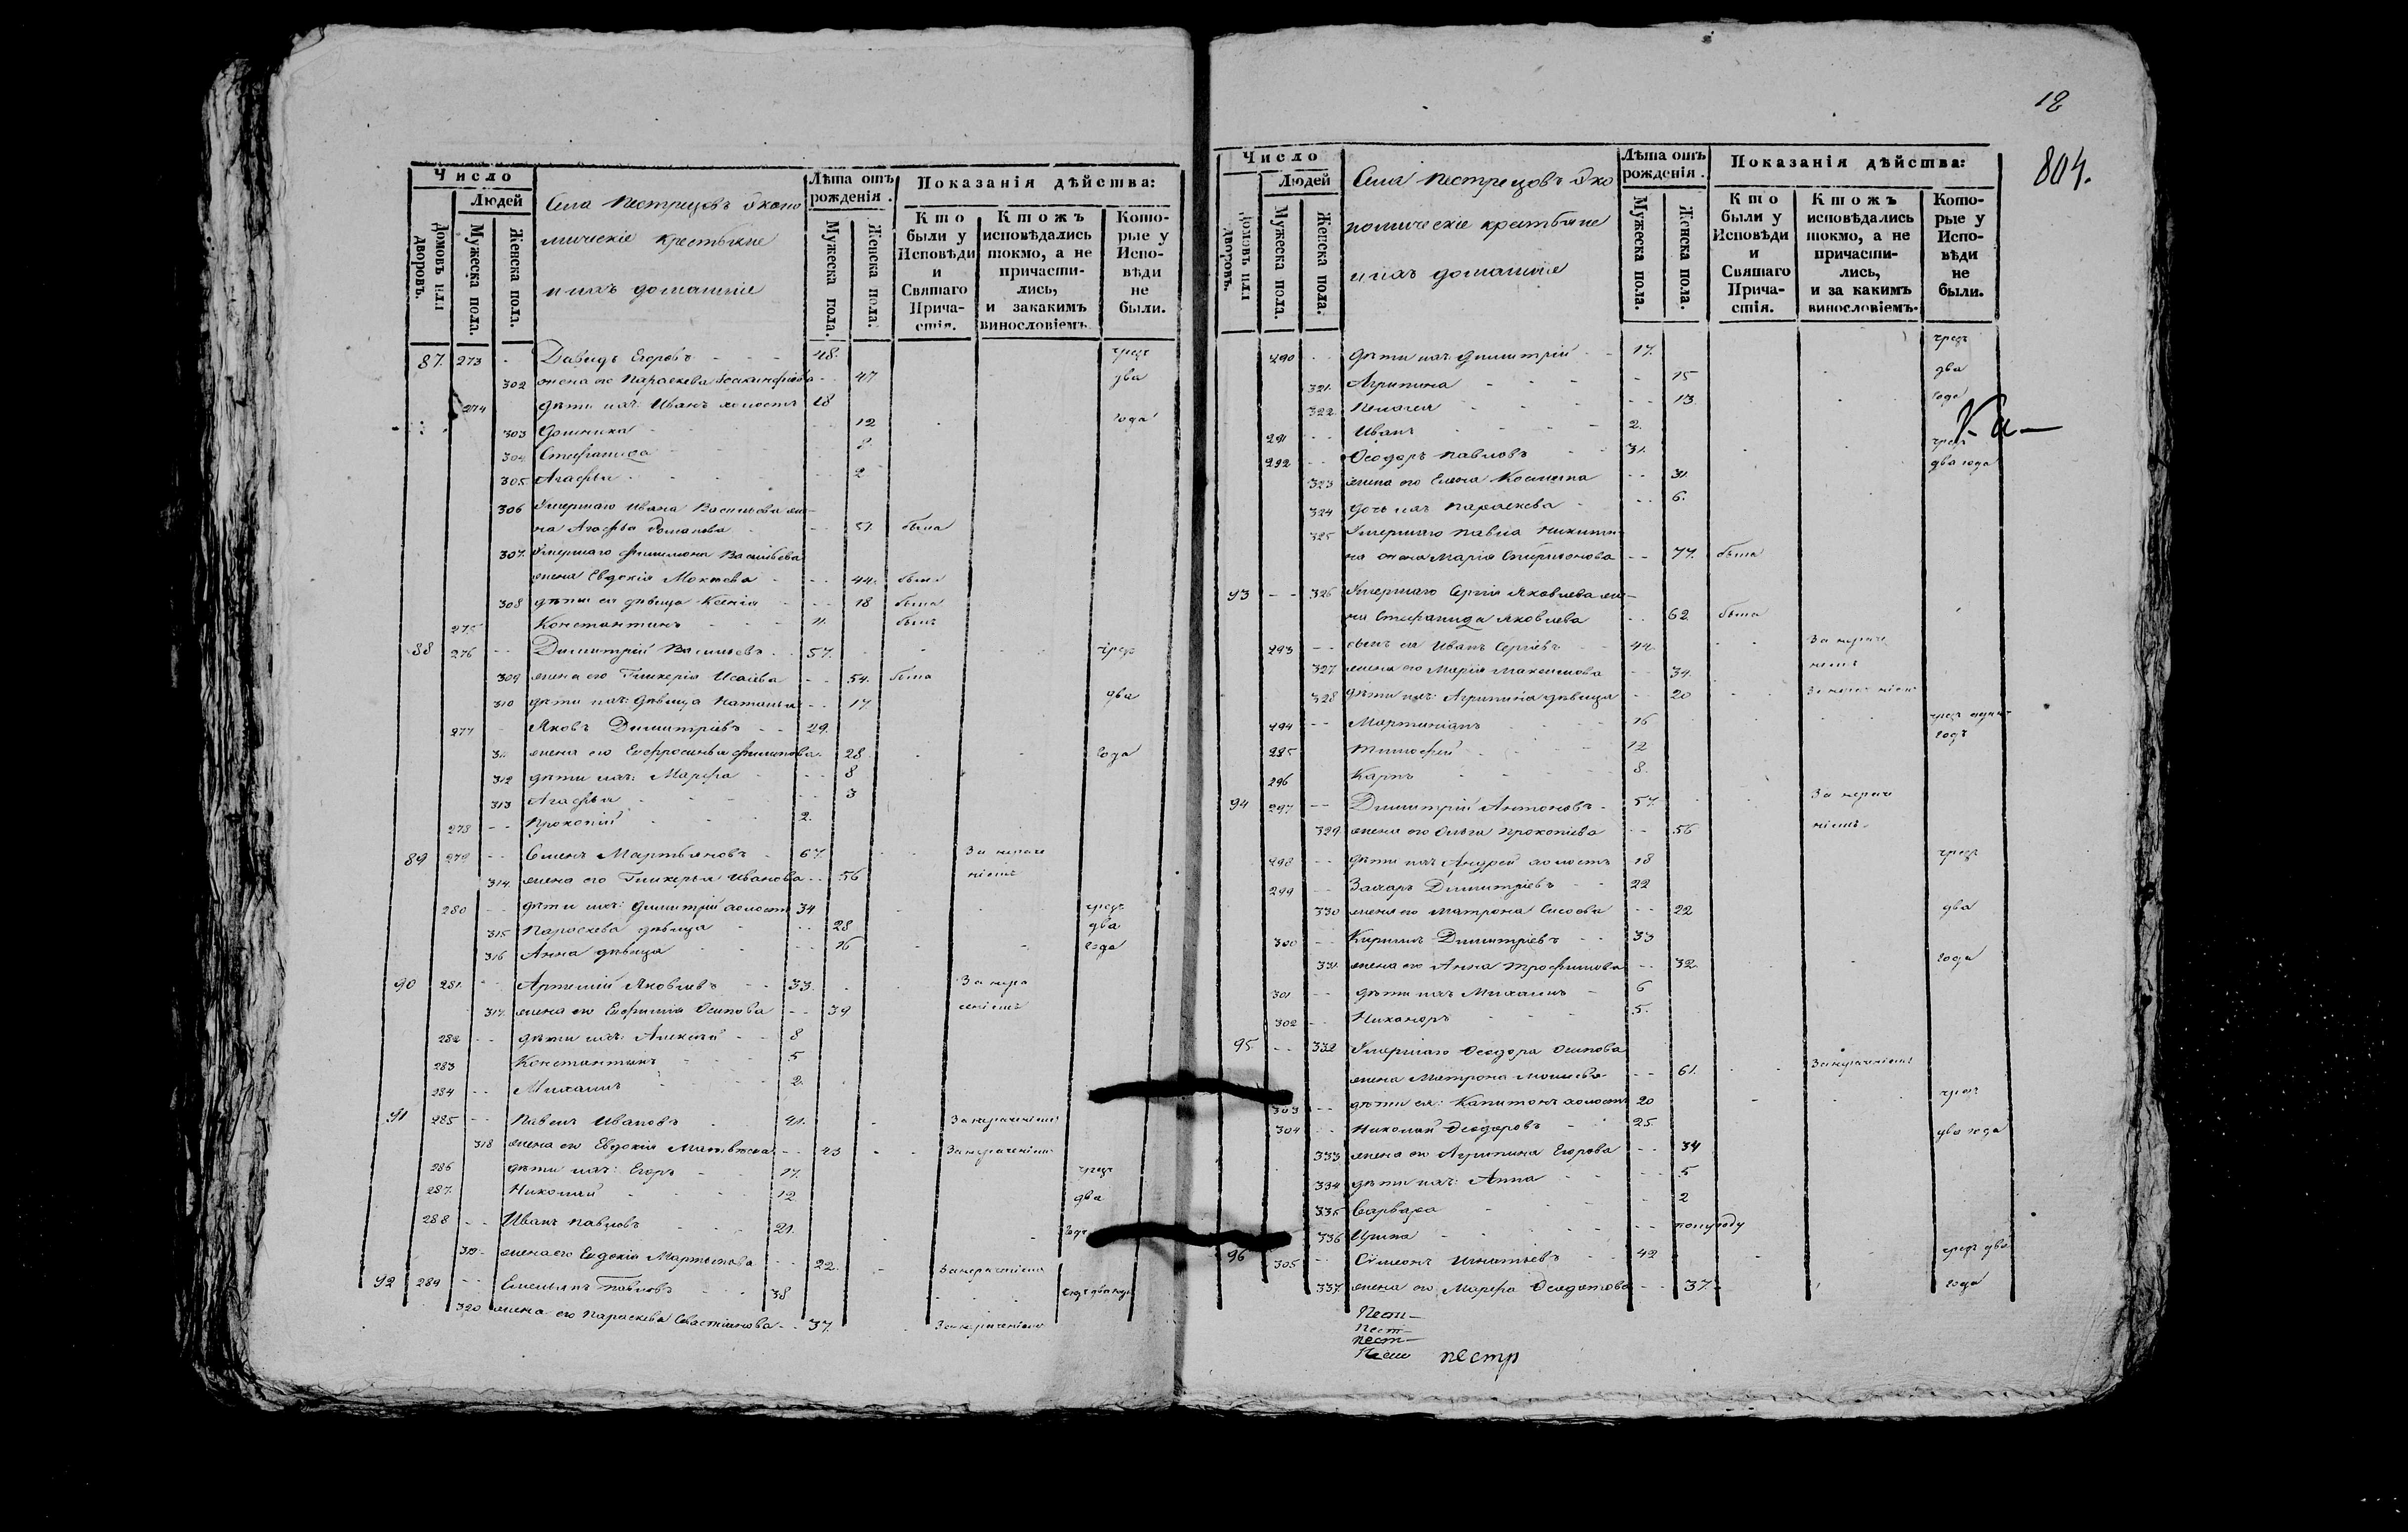 12
804.
Число
Людей
Домовъ или дворовъ.
Мужеска пола.
Женска пола.
Села Пестрецовъ Эконо
мическіе крестьяне
и ихъ домашніе
Лѣта отъ рожденія.
Мужеска пола.
Женска пола.
Показанія дѣйства:
Кто были у Исповѣди и Святаго Прича-стія.
Ктожъ исповѣдались токмо, а не причасти-лись, и закакимъ винословіемъ.
Кото-рые у Испо-вѣди не были.
87. 273 - Давидъ Егоровъ 48. чрезъ
302 жена его Параскева 47 два
274 дѣти ихъ: Иванъ холостъ 18
303 Домника 12 года
304 Стефанида 8.
305. Агафья 2
306 Умершаго Ивана Васильева же-
на Агафья Романова 51. была
307. Умершаго Филимона Васильева
жена Евдокія Мокіева 44. была
308 дѣти ея дѣвица Ксенія 18 была
275 Константинъ 11. былъ
88 276 Димитрій Васильевъ 57. чрезъ
309 жена его Гликерія Исаіева 54. была
310 дѣти ихъ: дѣвица Наталья 17. два
277 Яковъ Димитріевъ 29.
311 жена его Евфросинья Филипова 28 года
312 дѣти ихъ: Марфа 8
313 Агафья 3
278 Прокопій 2.
89 279 Семенъ Мартьяновъ 67. За нераче
314. жена его Гликерья Иванова 56 ніемъ
280 дѣти ихъ: Димитрій холостъ 34 чрезъ
315 Параскева дѣвица 28 два
316 Анна дѣвица 16 года
90 281. Артемій Яковлевъ 33. За нера
317. жена его Евфимія Осипова 39 ченіемъ
282 дѣти ихъ: Алексѣй 8
283 Константинъ 5
284 Михаилъ 2.
91 285 Павелъ Ивановъ 41. За нераченіемъ
318 жена его Евдокія Матвѣева 43 За нераченіемъ
286 дѣти ихъ: Егоръ 17. чрезъ
287. Николай 12 два
288 Иванъ Павловъ 21. года
319 жена его Евдокія Мартынова 22. За нераченіемъ
92 289 Емельянъ Павловъ 38 чрезъ два года
320 жена его Параскева Севастіянова 37. За нераченіемъ
Число
Людей
Домовъ или дворовъ.
Мужеска пола.
Женска пола.
Села Пестрецовъ Эко
номическіе крестьяне
и ихъ домашніе
Лѣта отъ рожденія.
Мужеска пола.
Женска пола.
Показанія дѣйства:
Кто были у Исповѣди и Святаго Прича-стія.
Ктожъ исповѣдались токмо, а не причасти-лись, и за какимъ винословіемъ.
Кото-рые у Испо-вѣди не были.
290 дѣти ихъ: Димитрій 17. чрезъ
321. Агрипина 15 два
322. Пелагея 13. года
Ка-
291 Иванъ 2.
292 Ѳеодоръ Павловъ 31. чрезъ
323 жена его Елена Космина 31. два года
324 дочь ихъ Параскева 6.
325 Умершаго Павла Никити-
на жена Марія Спиридонова 77. была
93 326 Умершаго Сергія Яковлева же-
на Стефанида Яковлева 62 была
293 сынъ ея Иванъ Сергіевъ 44. За нераче
327 жена его Марія Максимова 34. ніемъ
328 дѣти ихъ: Агрипина дѣвица 20 За нераченіемъ
294 Мартиніанъ 16 чрезъ одинъ
295 Тимофей 12 годъ
296 Карпъ 8.
94 297 Димитрій Антоновъ 57. За нераче
329 жена его Ольга Прокопіева 56 ніемъ
298 дѣти ихъ Андрей холостъ 18 чрезъ
299 Захаръ Димитріевъ 22
330 жена его Матрона Сысоева 22 два
300 Кирилъ Димитріевъ 33
331. жена его Анна Трофимова 32. года
301 дѣти ихъ Михаилъ 6
302 Никаноръ 5.
95. 332 Умершаго Ѳеодора Осипова
жена Матрона Моисеева 61. За нераченіемъ
303 дѣти ея: Капитонъ холостъ 20 чрезъ
304 Николай Ѳеодоровъ 25. два года
333 жена его Агрипина Егорова 34
334 дѣти ихъ: Анна 5
335 Варвара 2
336 Ирина полугоду
96 305 Сѵмеонъ Игнатьевъ 42 чрезъ два
337. жена его Марфа Ѳеодотова 37. года
Пест-
Пест-
Пест-
Пест пестр